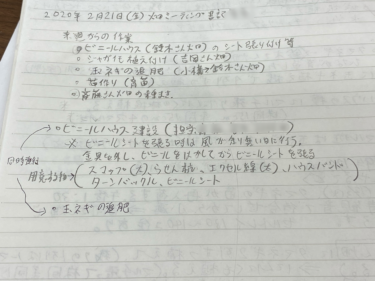 2020年 2月21日(金) 畑ミーティング 書記
来週からの作業
①ビニールハウス(鈴木さん畑)のシート張り付け
○ジャガイモ植え付け(吉田さん畑)
○玉ネギの追肥(小橋・鈴木さん畑)
○苗作り
○斎藤さん畑の種まき
→○ビニールハウス建設(担当
※ビニールシートを張る時は風が余り無い日に行う。
金具を外し、ビニールをはがしてからビニールシートを張る
スコップ(大)、らせん杭、エクセル線(大)、ハウスバンド
ターンバックル、ビニールシート
→○玉ネギの追肥